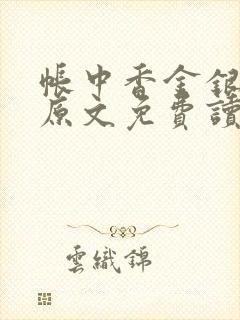 帳中香金銀
原文免費讀
雲織錦